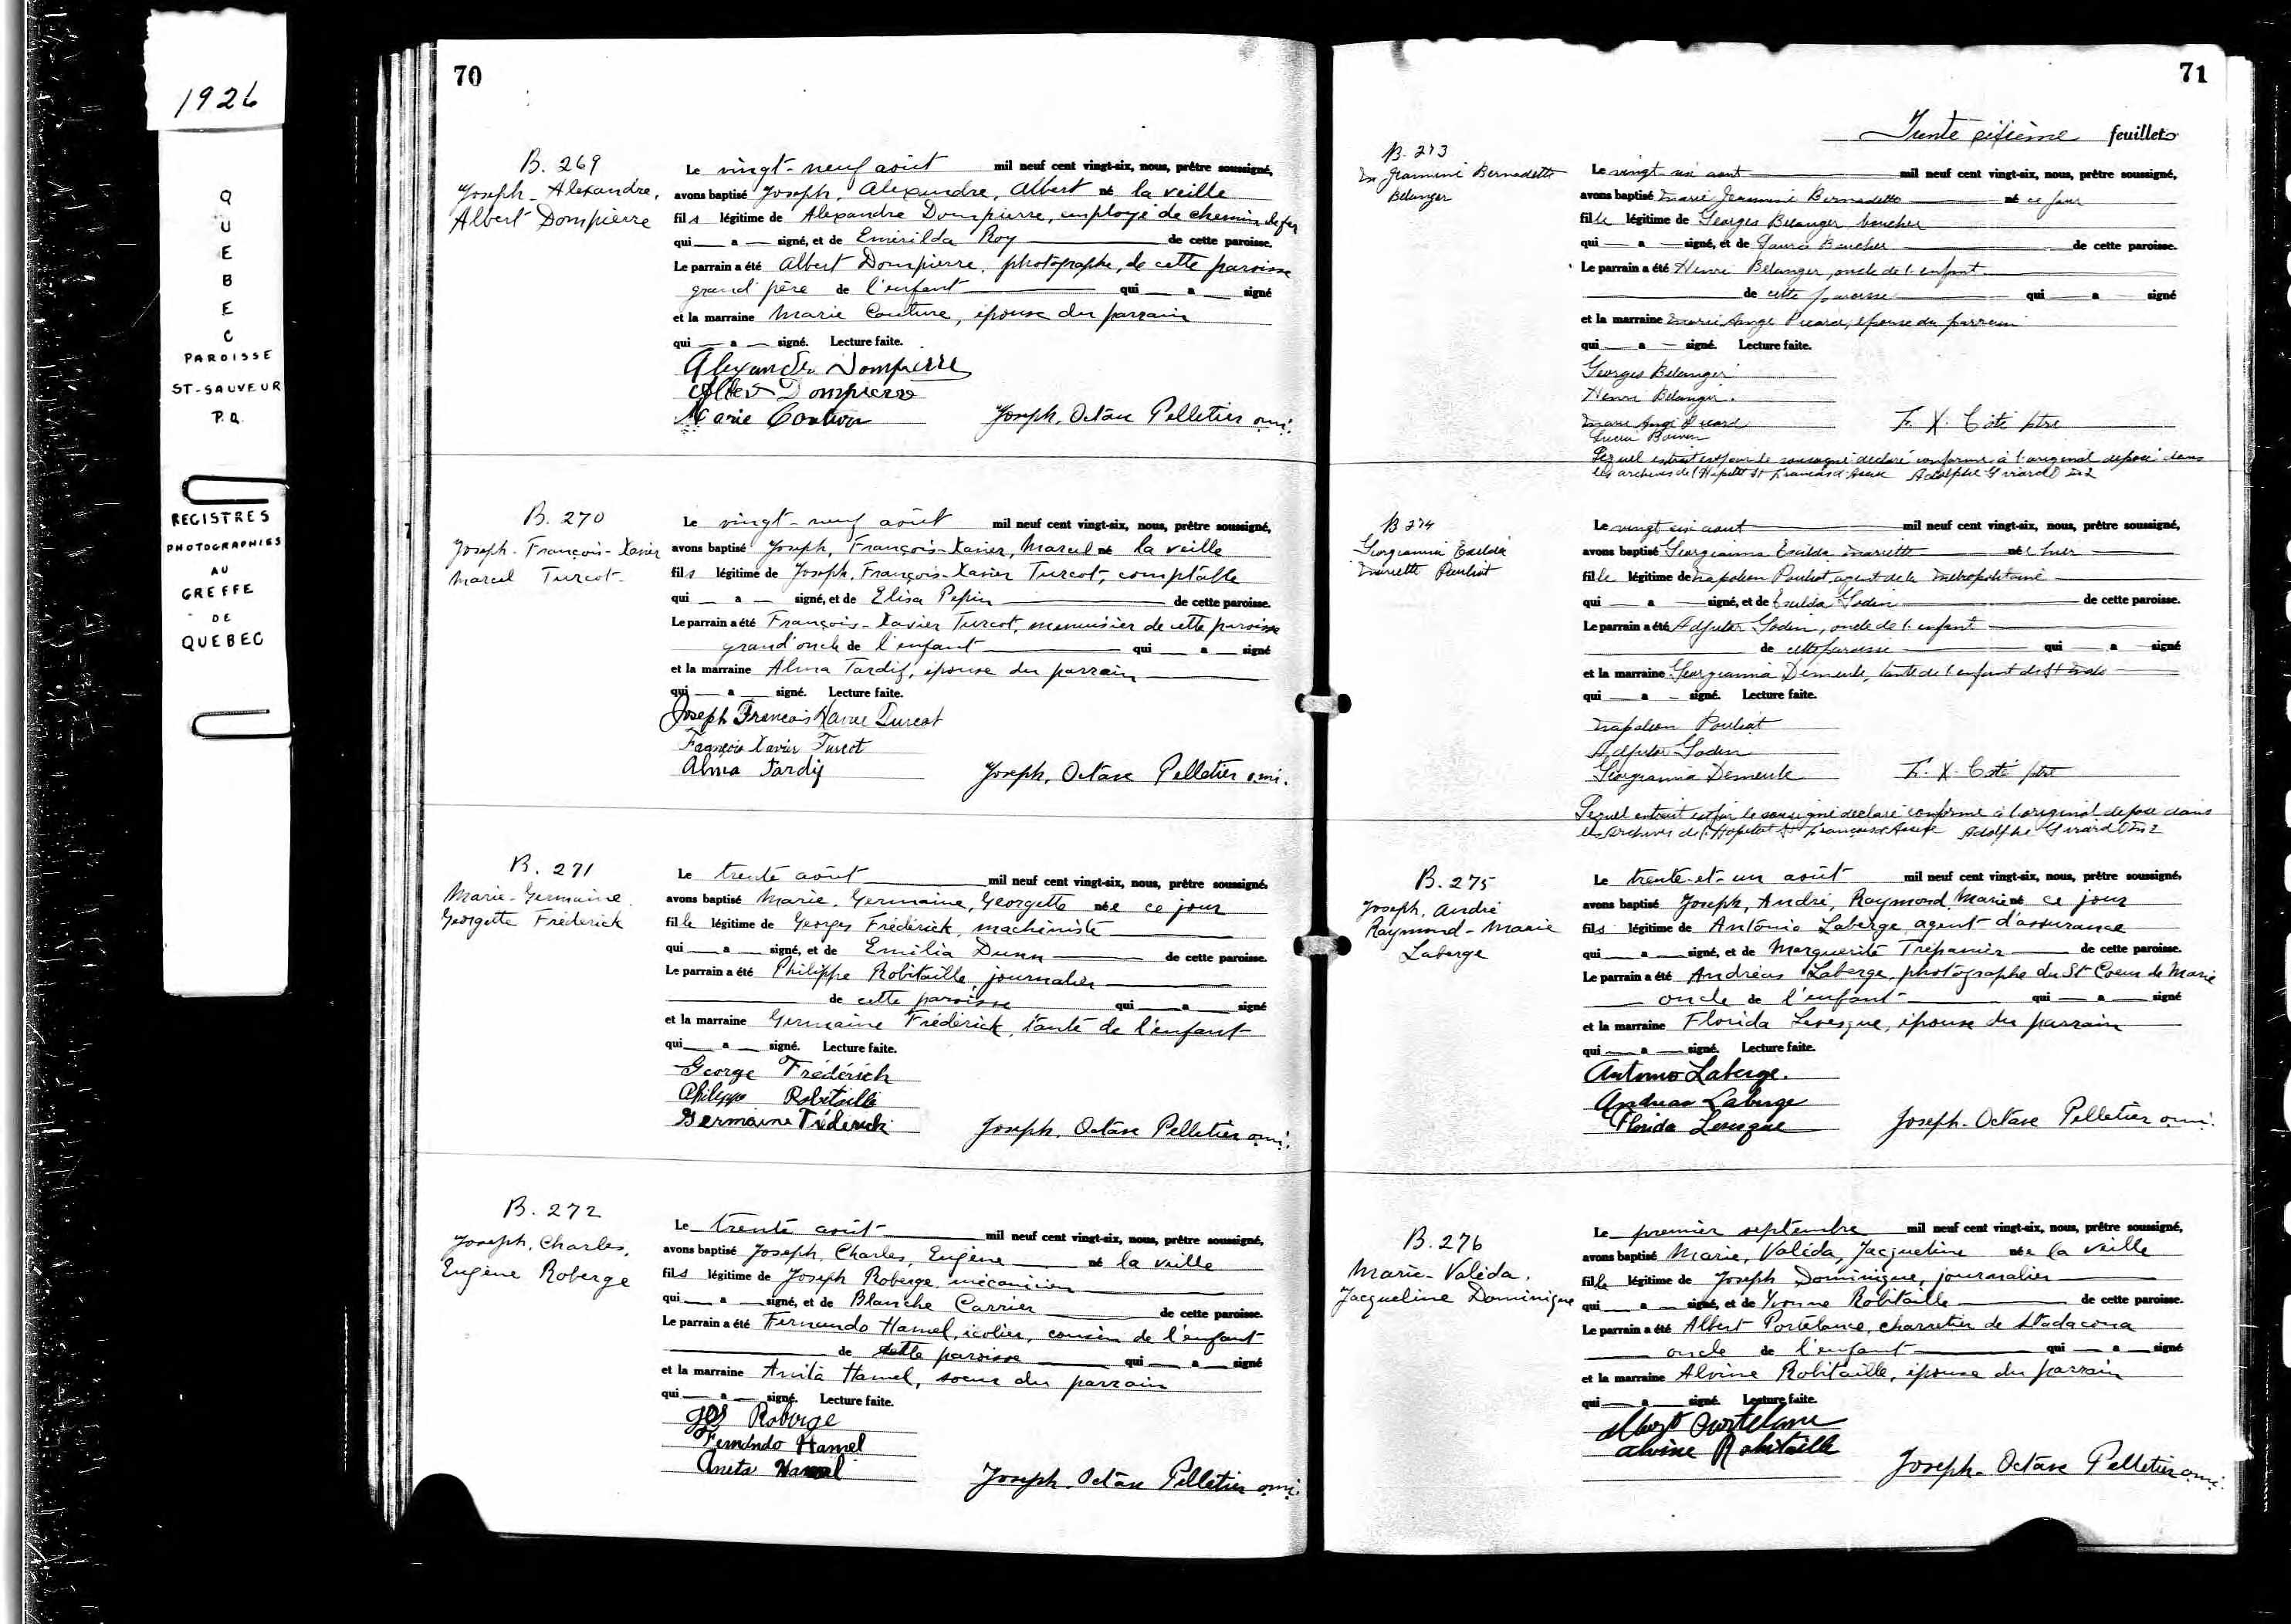 1926
QUEBEC
PAROISSE
ST-SAUVEUR
P.Q.
REGISTRES
PHOTOGRAPHIES
AU
GREFFE
DE
QUEBEC
70
B. 269
Joseph-Alexandre,
Albert Dompierre
Le vingt-neuf août mil neuf cent vingt-six, nous, prêtre soussigné,
avons baptisé Joseph, Alexandre, Albert né la veille
fils légitime de Alexandre Dompierre, employé de chemin de fer
qui — a — signé, et de Emérilda Roy de cette paroisse.
Le parrain a été Albert Dompierre, photographe, de cette paroisse
grand père de l'enfant qui — a — signé
et la marraine Marie Couture, épouse du parrain
qui — a — signé. Lecture faite.
Alexandre Dompierre
Albert Dompierre
Marie Couture Joseph, Octave Pelletier o.m.i.
B. 270
Joseph-François-Xavier
Marcel Turcot
Le vingt-neuf août mil neuf cent vingt-six, nous, prêtre soussigné,
avons baptisé Joseph, François-Xavier, Marcel né la veille
fils légitime de Joseph, François-Xavier Turcot, comptable
qui — a — signé, et de Elisa Pepin de cette paroisse.
Le parrain a été François-Xavier Turcot, menuisier de cette paroisse
grand'oncle de l'enfant qui — a — signé
et la marraine Alma Tardif, épouse du parrain
qui — a — signé. Lecture faite.
Joseph François Xavier Turcot
François Xavier Turcot
Alma Tardif Joseph, Octave Pelletier o.m.i.
B. 271
Marie-Germaine
Georgette Fréderick
Le trente août mil neuf cent vingt-six, nous, prêtre soussigné,
avons baptisé Marie, Germaine, Georgette née ce jour
fille légitime de Georges Fréderick, machiniste
qui — a — signé, et de Emilia Dunn de cette paroisse.
Le parrain a été Philippe Robitaille, journalier
de cette paroisse qui — a — signé
et la marraine Germaine Fréderick, tante de l'enfant
qui — a — signé. Lecture faite.
George Fréderick
Philippe Robitaille
Germaine Fréderick Joseph, Octave Pelletier o.m.i.
B. 272
Joseph, Charles,
Eugène Roberge
Le trente août mil neuf cent vingt-six, nous, prêtre soussigné,
avons baptisé Joseph, Charles, Eugène né la veille
fils légitime de Joseph Roberge, mécanicien
qui — a — signé, et de Blanche Carrier de cette paroisse.
Le parrain a été Fernando Hamel, écolier, cousin de l'enfant
de cette paroisse qui — a — signé
et la marraine Anita Hamel, soeur du parrain
qui — a — signé. Lecture faite.
Jos Roberge
Fernando Hamel
Anita Hamel Joseph, Octave Pelletier o.m.i.
71
Trente sixième feuillet
B. 273
M Jeannine Bernadette
Belanger
Le vingt six aout mil neuf cent vingt-six, nous, prêtre soussigné,
avons baptisé Marie Jeannine Bernadette né ce jour
fille légitime de Georges Belanger boucher
qui — a — signé, et de Laura Boucher de cette paroisse.
Le parrain a été Henri Belanger, oncle de l'enfant
de cette paroisse qui — a — signé
et la marraine Marie Ange Picard, épouse du parrain
qui — a — signé. Lecture faite.
Georges Belanger
Henri Belanger
Marie Ange Picard F. X. Côté ptre
Lequel extrait est par le soussigné declaré conforme à l'original déposé dans
les archives de l'Hopital St François d'Assise Adolphe Girard
B 274
Georgianna Exilda
Mariette Pouliot
Le vingt six aout mil neuf cent vingt-six, nous, prêtre soussigné,
avons baptisé Georgianna Exilda Mariette née hier
fille légitime de Napoleon Pouliot, agent de la Metropolitaine
qui — a — signé, et de Exilda Godin de cette paroisse.
Le parrain a été Adjutor Godin, oncle de l'enfant
de cette paroisse qui — a — signé
et la marraine Georgianna Demeule, tante de l'enfant de St
qui — a — signé. Lecture faite.
Napoleon Pouliot
Adjutor Godin
Georgianna Demeule F. X. Coté ptre
Lequel extrait est par le soussigné declaré conforme à l'original déposé dans
les archives de l'Hopital St François d'Assise Adolphe Girard
B. 275
Joseph, André
Raymond-Marie
Laberge
Le trente-et-un août mil neuf cent vingt-six, nous, prêtre soussigné,
avons baptisé Joseph, André, Raymond, Marie né ce jour
fils légitime de Antonio Laberge, agent d'assurance
qui — a — signé, et de Marguerite Trépanier de cette paroisse.
Le parrain a été Andréas Laberge, photographe du St Coeur de Marie
oncle de l'enfant qui — a — signé
et la marraine Florida Levesque, épouse du parrain
qui — a — signé. Lecture faite.
Antonio Laberge.
Andreas Laberge
Florida Levesque Joseph-Octave Pelletier o.m.i.
B. 276
Marie-Valéda,
Jacqueline Dominique
Le premier septembre mil neuf cent vingt-six, nous, prêtre soussigné,
avons baptisé Marie, Valéda, Jacqueline née la veille
fille légitime de Joseph Dominique, journalier
qui — a — signé, et de Yvonne Robitaille de cette paroisse.
Le parrain a été Albert Portelance, charretier de Stadacona
oncle de l'enfant qui — a — signé
et la marraine Alvine Robitaille, épouse du parrain
qui — a — signé. Lecture faite.
Albert Portelance
Alvine Robitaille
Joseph-Octave Pelletier o.m.i.